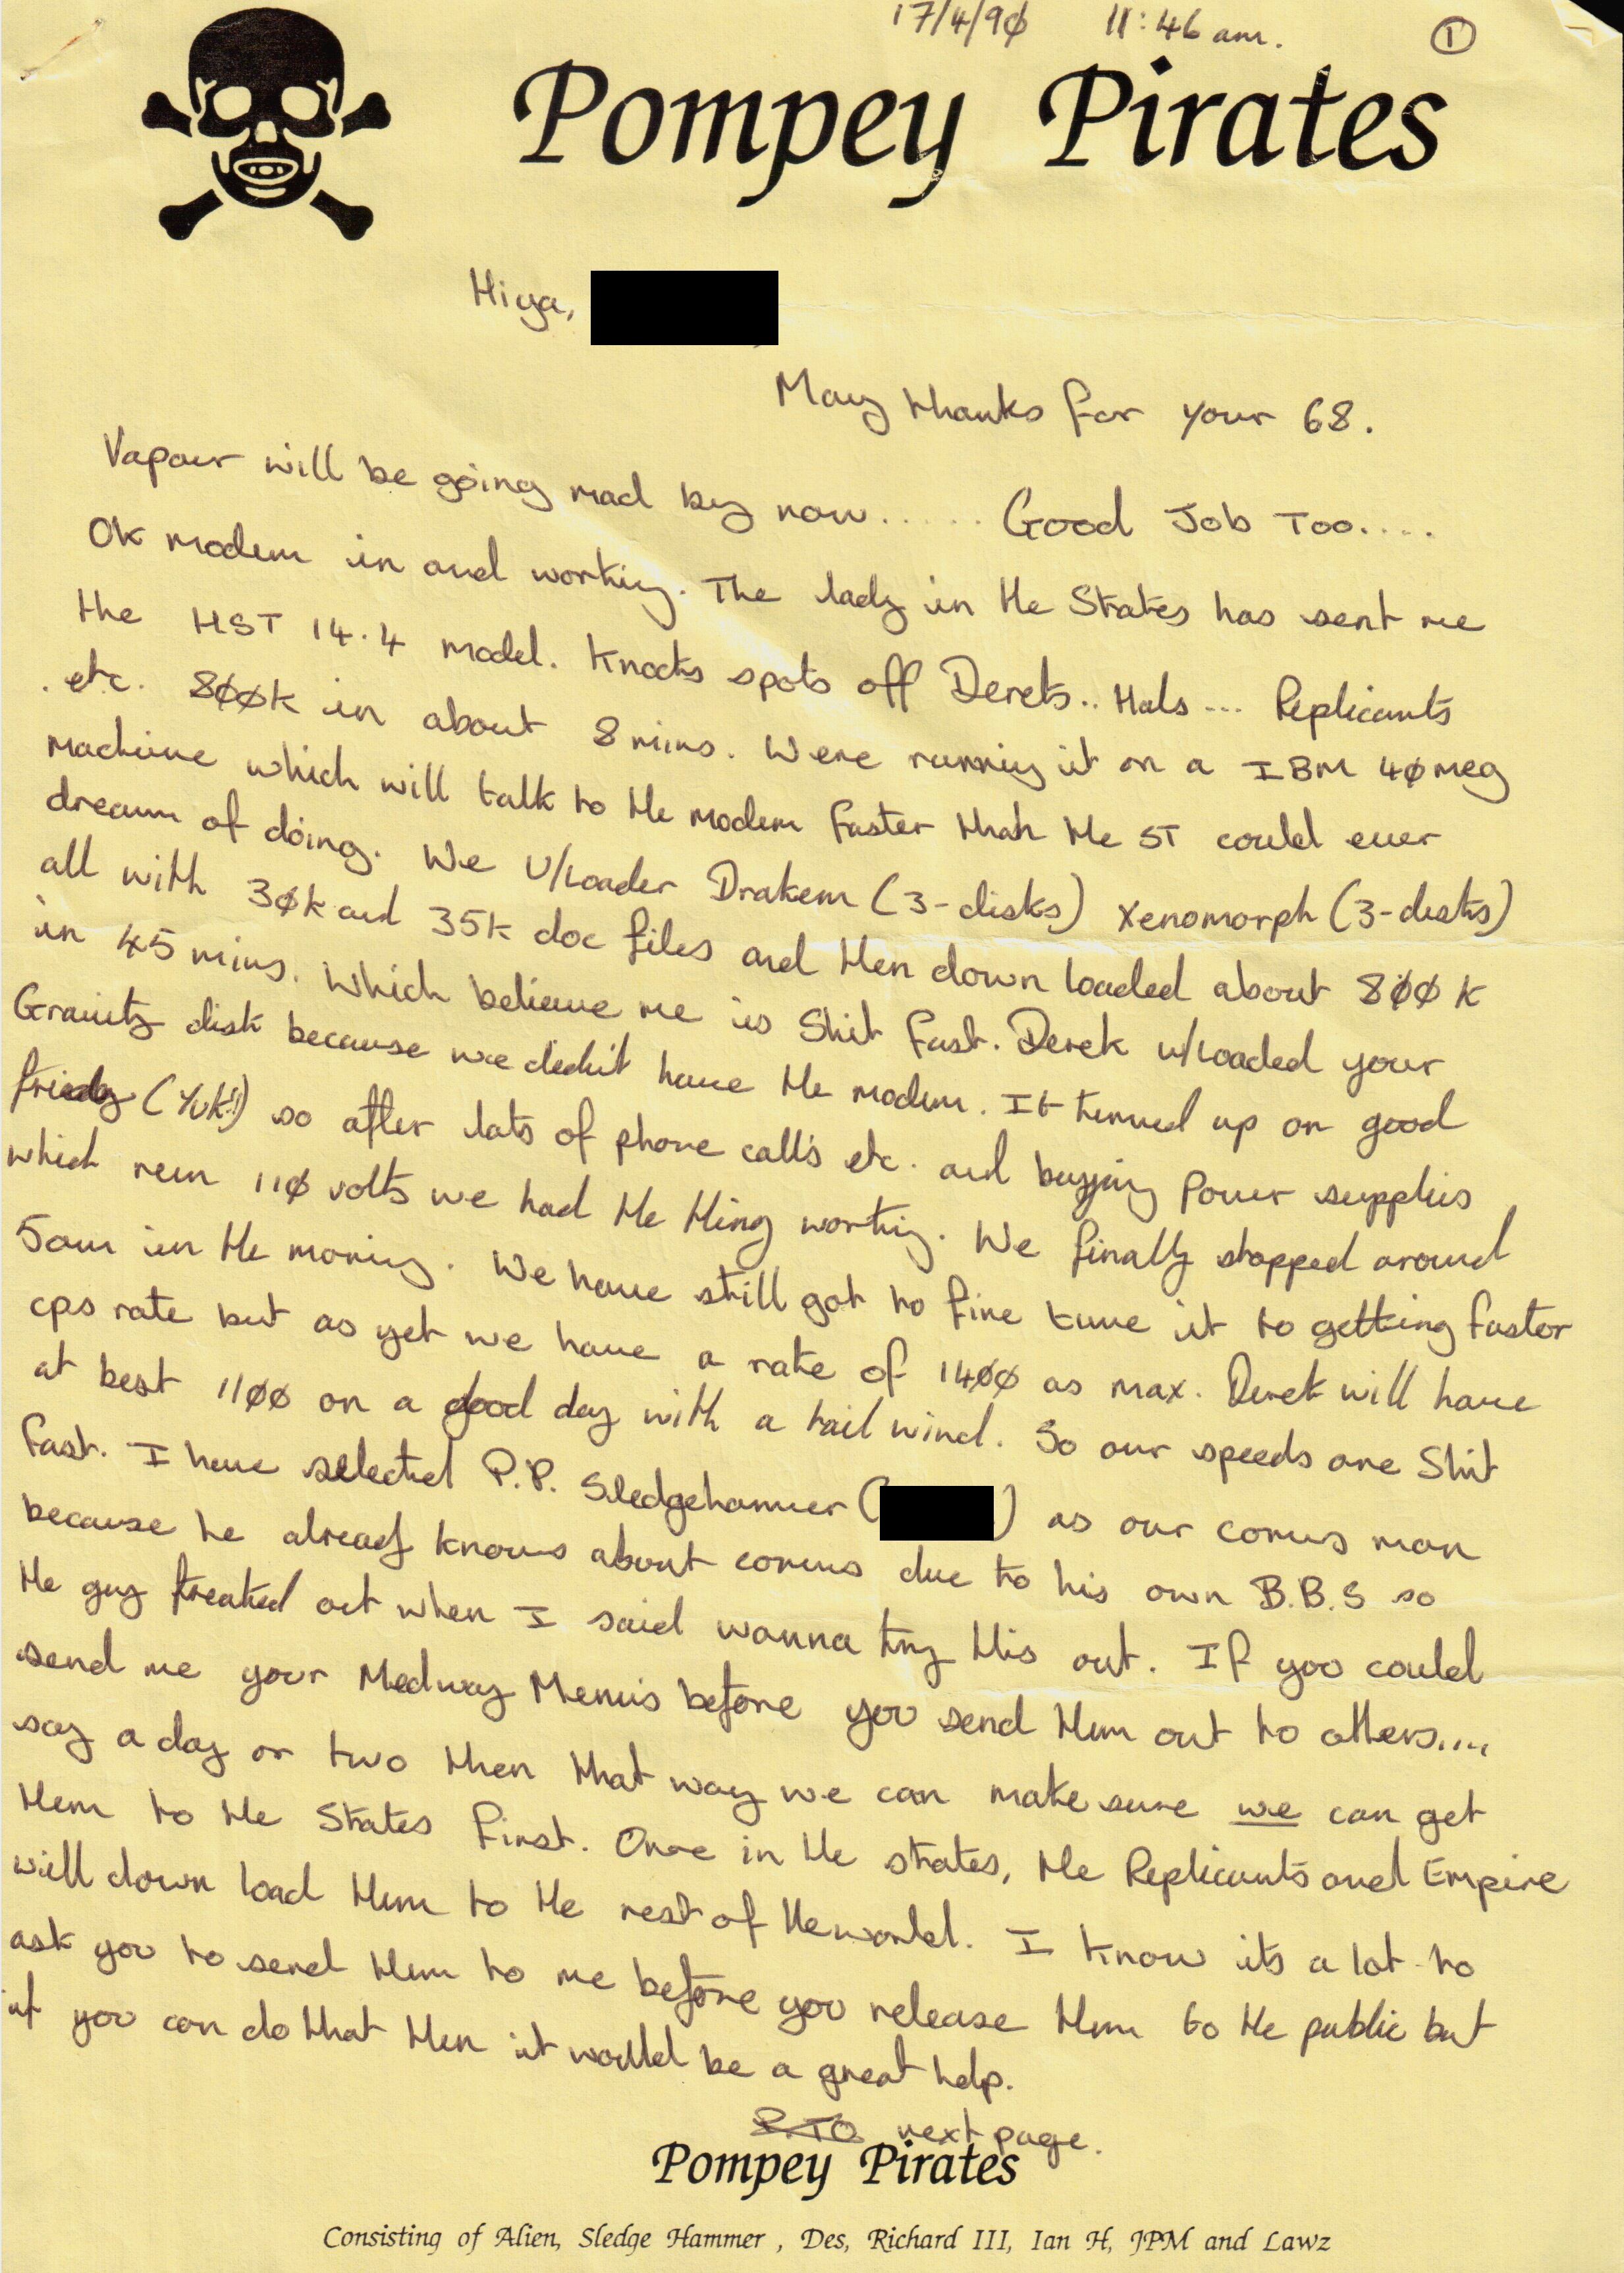 17/4/90 11:46 am. 1
Pompey Pirates
Hiya,
Many thanks for your 68.
Vapour will be going mad by now...... Good Job Too....
OK modem in and working. The lady in the States has sent me
the HST 14.4 model. Knocks spots off Dereks.. Hals... Replicants
. etc. 800K in about 8 mins. Were running it on a IBM 40 meg
machine which will talk to the modem faster than the ST could ever
dream of doing. We U/Loader Drakem (3-disks) Xenomorph (3-disks)
all with 30k and 35k doc files and then down loaded about 800 K
in 45 mins. Which believe me is Shit Fast. Derek u/loaded your
Gravity disk because we didn't have the modem. It turned up on good
friday (YUK!!) so after lots of phone calls etc. and buying power supplies
which run 110 volts we had the thing working. We finally stopped around
5am in the morning. We have still got to fine tune it to getting faster
cps rate but as yet we have a rate of 1400 as max. Derek will have
at best 1100 on a good day with a tail wind. So our speeds are Shit
Fast. I have selected P.P. Sledgehammer ( ) as our comms man
because he already knows about comms due to his own B.B.S so
the guy freaked out when I said wanna try this out. If you could
send me your Medway Menus before you send them out to others....
say a day or two then that way we can make sure we can get
them to the States first. Once in the states, the Replicants and Empire
will down load them to the rest of the world. I know its a lot to
ask you to send them to me before you release them to the public but
if you can do that then it would be a great help.
P.TO next page.
Pompey Pirates
Consisting of Alien, Sledge Hammer , Des, Richard III, Ian H, JPM and Lawz